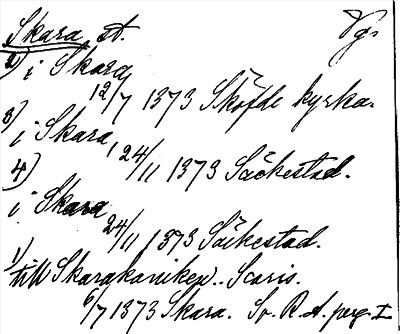 Skara st. Vg.
2) i Skara
12/7 1373 Sköfde kyrka.
3) i Skara
24/11 1373 Säckestad.
4) i Skara
24/11 1373 Säckestad.
1) till Skarakaniken.. Scaris.
6/7 1373 Skara. Sv. R. A. perg. I